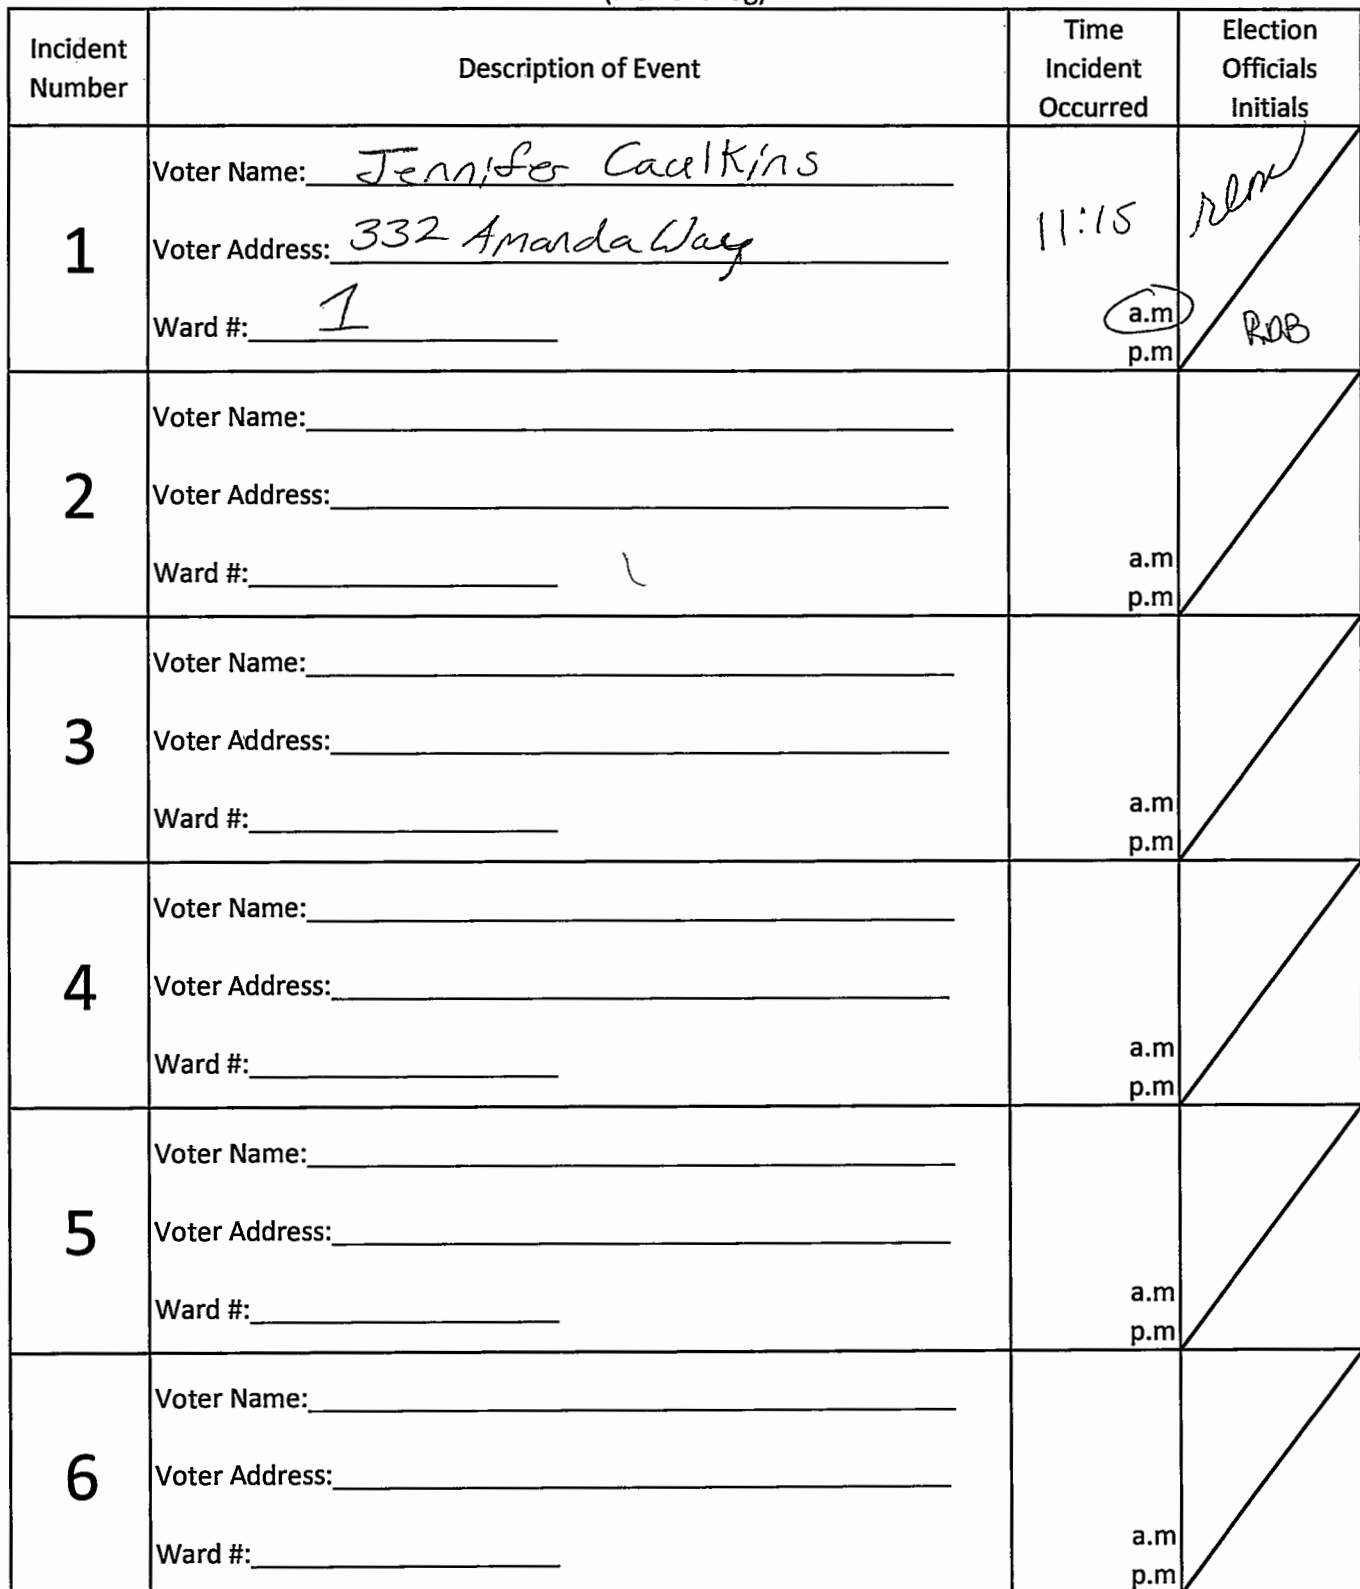 Incident Number
Description of Event
Time Incident Occurred
Election Officials Initials
1
Voter Name: Jennifer Caulkins
Voter Address: 332 Amanda Way
Ward #: 1
11:15
a.m
p.m
RDB
2
Voter Name:
Voter Address:
Ward #:
a.m
p.m
3
Voter Name:
Voter Address:
Ward #:
a.m
p.m
4
Voter Name:
Voter Address:
Ward #:
a.m
p.m
5
Voter Name:
Voter Address:
Ward #:
a.m
p.m
6
Voter Name:
Voter Address:
Ward #:
a.m
p.m